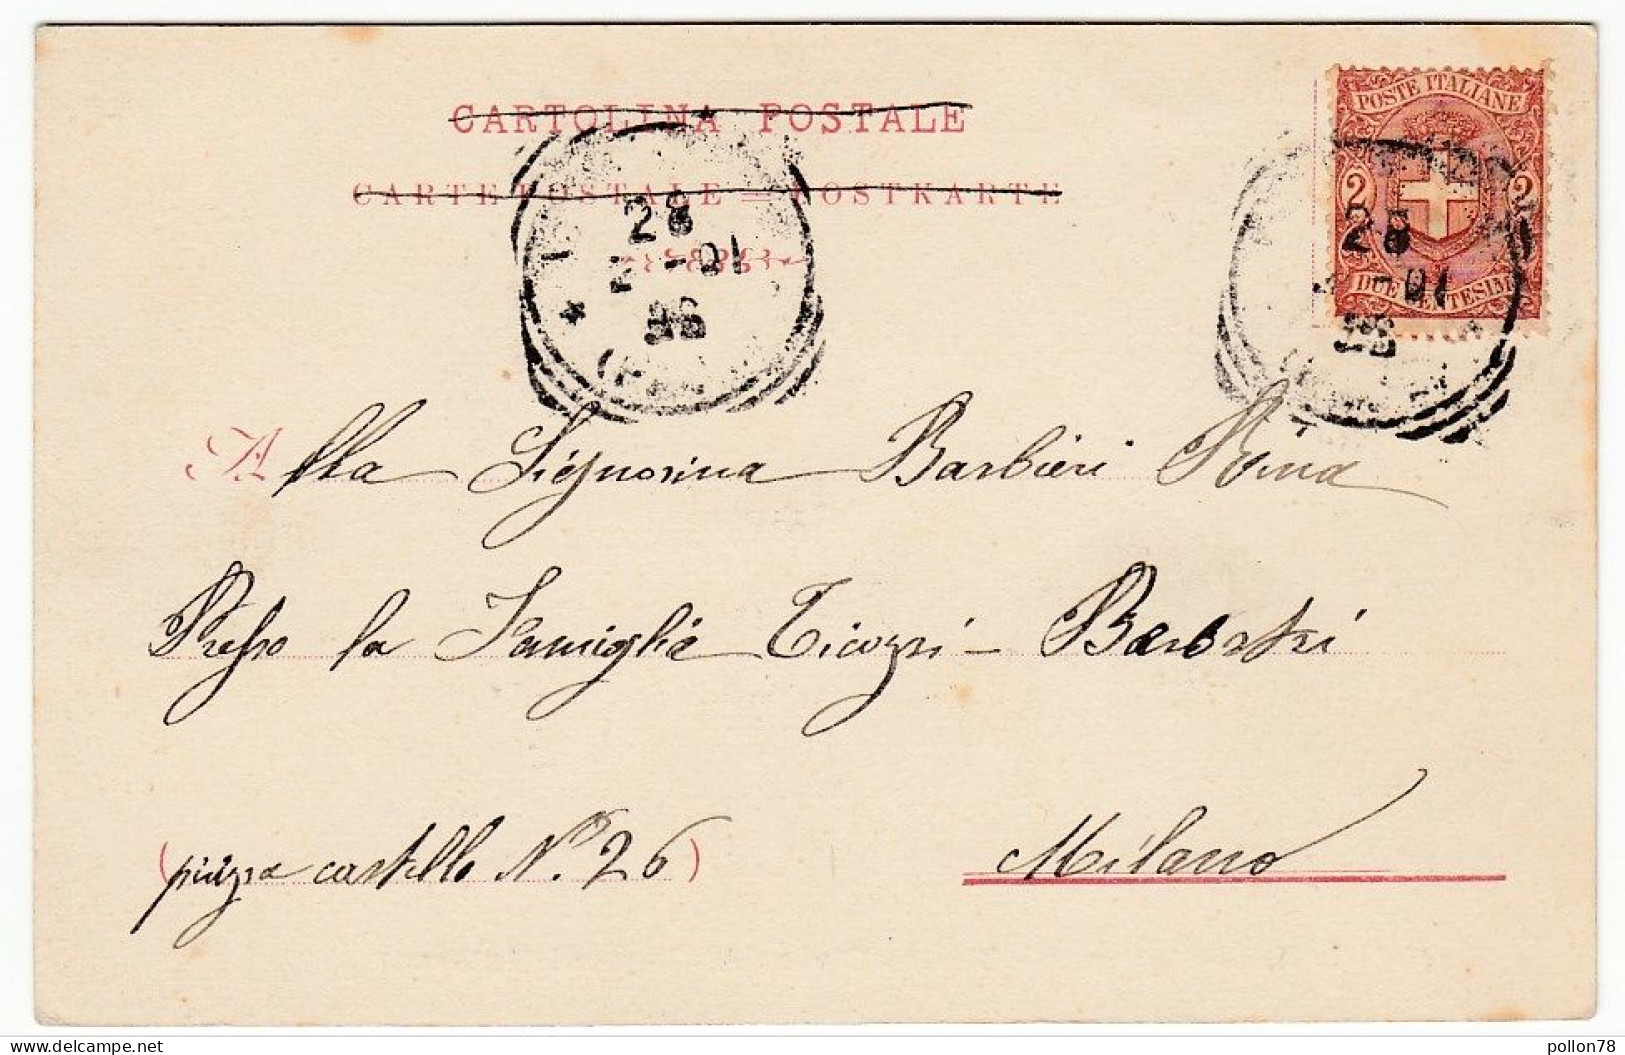 CARTOLINA POSTALE
CARTE POSTALE — POSTKARTE
POSTE ITALIANE
2 2
DUE CENTESIMI
28
-01
28
-01
Alla Signorina Barbieri
Presso la Famiglia Ticozzi -
(piazza castello No. 26)
Milano
delcampe.net
pollon78